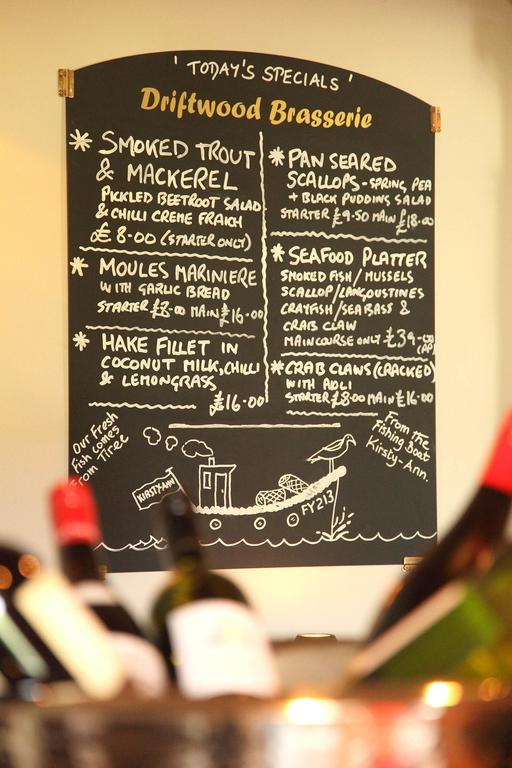 ' TODAY'S SPECIALS '
Driftwood Brasserie
* SMOKED TROUT
& MACKEREL
PICKLED BEETROOT SALAD
& CHILLI CREME FRAICH
£8-00 (STARTER ONLY)
* MOULES MARINIERE
WITH GARLIC BREAD
STARTER £8-00 MAIN £16-00
* HAKE FILLET IN
COCONUT MILK, CHILLI
& LEMONGRASS
£16-00
* PAN SEARED
SCALLOPS - SPRING, PEA
+ BLACK PUDDING SALAD
STARTER £9-50 MAIN £18-00
* SEAFOOD PLATTER
SMOKED FISH / MUSSELS
SCALLOP / LANGOUSTINES
CRAYFISH / SEABASS &
CRAB CLAW
MAIN COURSE ONLY £39-00
* CRAB CLAWS (CRACKED)
WITH AOLI
STARTER £8-00 MAIN £16-00
Our Fresh
Fish comes
From Tiree
From the
Fishing Boat
Kirsty-Ann.
KIRSTY-ANN
FY213